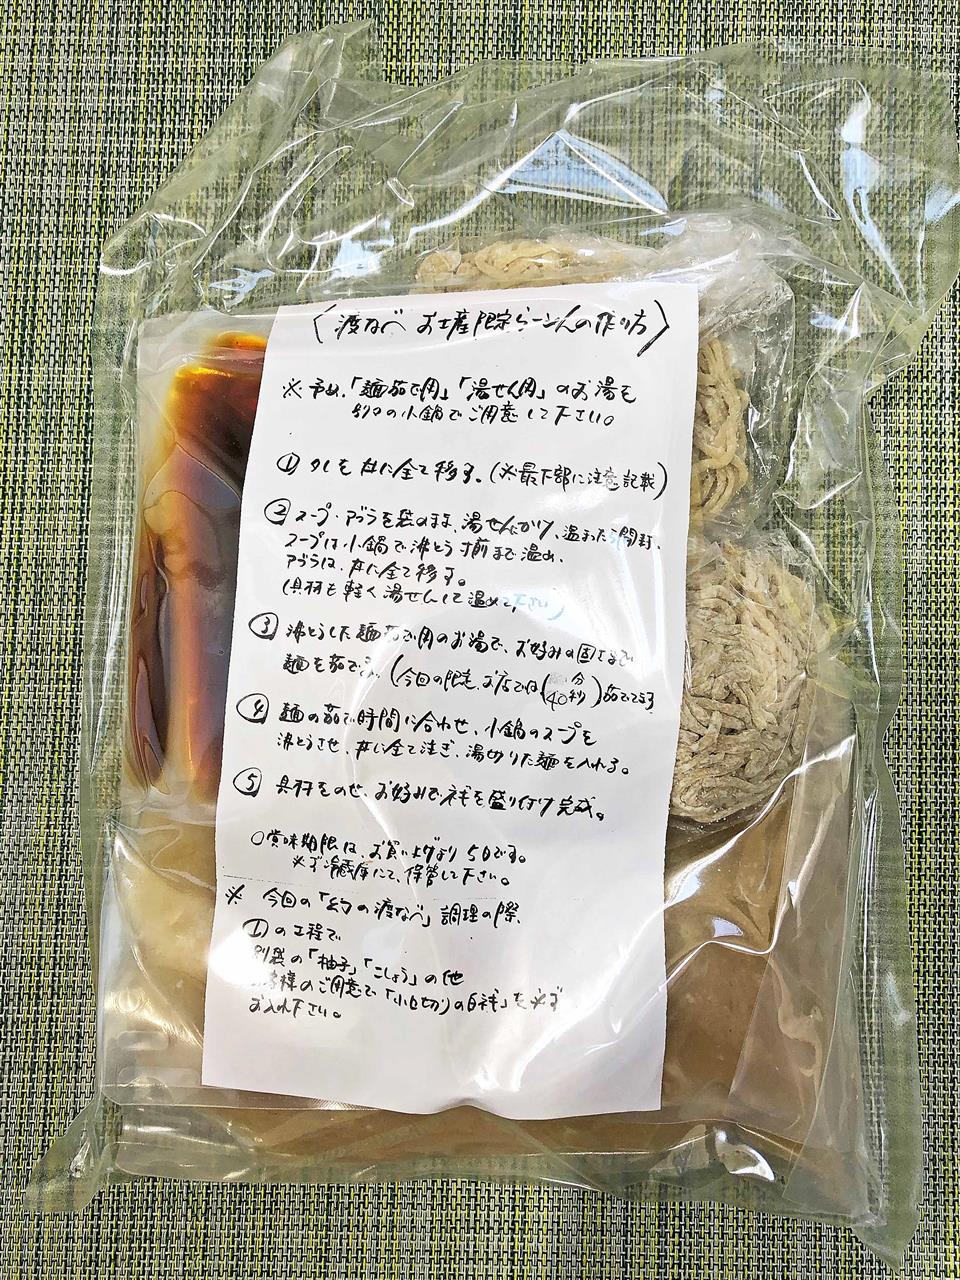 〈渡なべ お土産限定らーめんの作り方〉
※予め、「麺茹で用」「湯せん用」のお湯を
別々の小鍋でご用意して下さい。
① タレを丼に全て移す。(※最下部に注意記載)
② スープ・アブラを袋のまま、湯せんかけ、温まったら開封、
スープは小鍋で沸とう寸前まで温め、
アブラは、丼に全て移す。
(具材も軽く湯せんして温めて下さい)
③ 沸とうした麺茹で用のお湯で、お好みの固さまで
麺を茹でる。(今回の限定、お店では(分40秒)茹でてます
④ 麺の茹で時間に合わせ、小鍋のスープを
沸とうさせ、丼に全て注ぎ、湯切りした麺を入れる。
⑤ 具材をのせ、お好みでネギを盛り付け完成。
○賞味期限は、お買い上げより5日です。
※必ず冷蔵庫にて、保管して下さい。
※ 今回の「幻の渡なべ」調理の際、
①の工程で
別袋の「柚子」「こしょう」の他
お客様のご用意で「小口切りの白ネギ」を必ず
お入れ下さい。